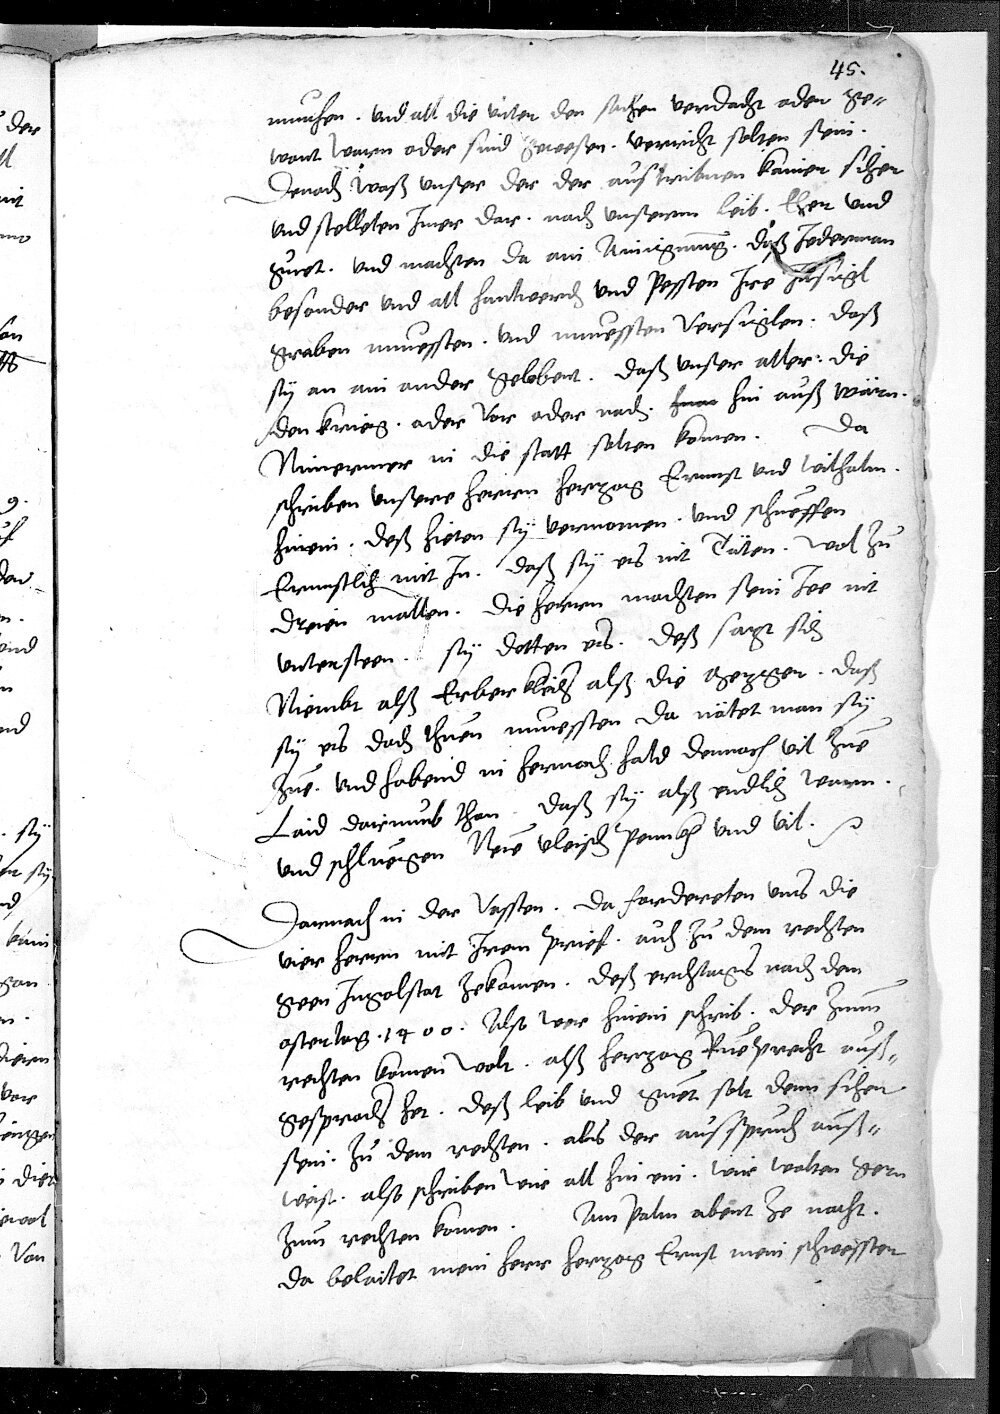 45.
muchen. und all die unter den sachen verdacht oder ge-
want warn oder sind gewesen. verricht solten sein.
Dennoch waß unser der der austribnen kainer sicher
und stelleten Inner dar. nach unserm leib. Eher und
guet. und machten da ain Ainigung. daß Jederman
besonder und all hantwerch und Pessten Ire Insigl
graben muessten. und muessten Versiglen. daß
sy an ain ander gelobent. daß unser aller: die
den krieg. oder vor oder nach. hin auß wärn.
Nimermer in die statt solten komen. Da
schriben unsere herren herzog Ernnst und wilhalm.
hinein. deß hieten sy vernomen. und schueffen
Ernnstlich mit In. daß sy es nit Täten. wol zu
dreien mallen. die herren mochten sein Ire nit
untersteen. sy detten es. deß sagt sich
Niembt alß Erber kleich alß die gegger. daß
sy es doch thuen muessten da nötet man sy
zue. und habend in hernach hald dennoch vil zue
Laid darumb than. daß sy alß endlich warn.
und schluegen Neue vleisch penckh und vil.
Darnach in der Vassten. da forderten uns die
vier herren mit Irem prief. auch zu dem rechten
geen Ingolstat zekomen. deß erchtags nach dem
ostertag. 1400. Also wer hinein schrib. der zum
rechten komen wolt. alß herzog Ruepprecht auß-
gesprochen het. deß leib und guet solt denn sicher
sein. zu dem rechten. als der ausspruch auß-
weist. also schriben wir all hin ein. wir wolten gern
zum rechten komen. Am palm abent ze nacht.
da belaitet mein herr herzog Ernst mein schwesster